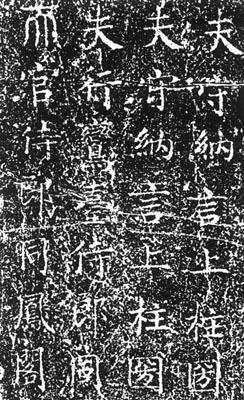 夫守納言上柱圀
夫守納言上柱圀
夫行鸞臺侍郎同
𠀑官侍郎同鳳閣